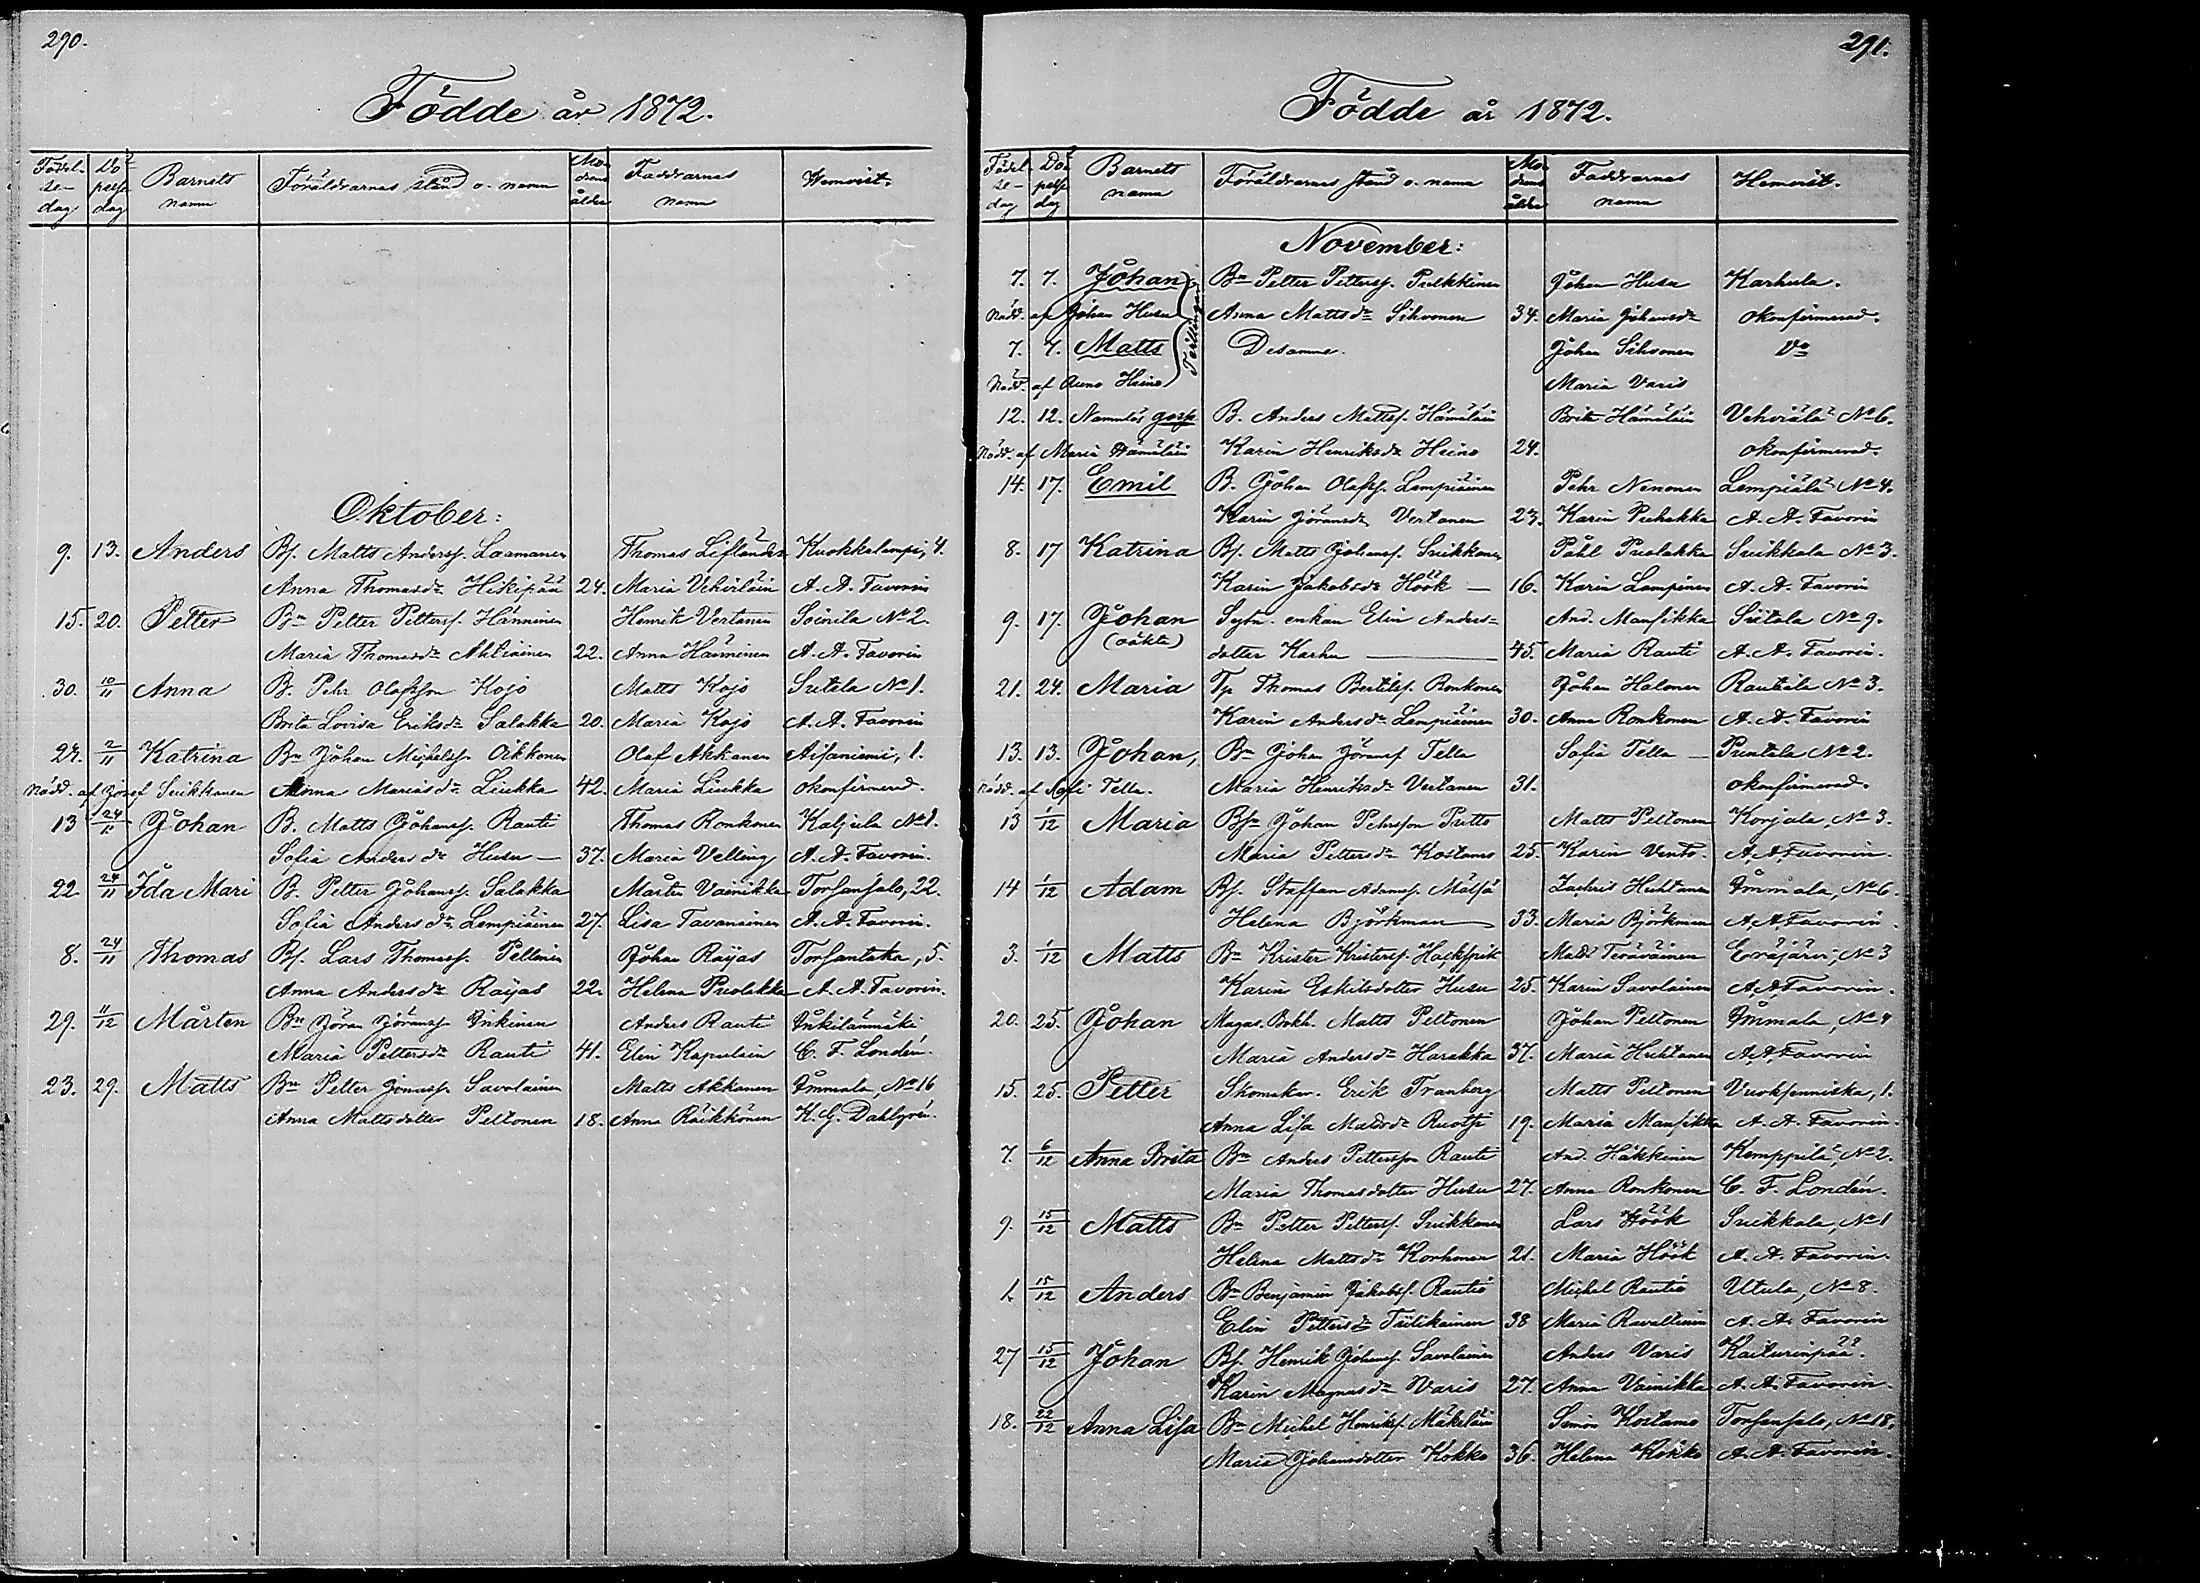 290.
Födde år 1872.
Födel-se-dag Do-pelse dag Barnets namn Föräldrarnas stånd o. namn Mo-drens ålder Faddrarnas namn Hemvist.
Oktober:
9. 13. Anders Bs. Matts Anderss. Laamanen Thomas Liflander Kuokkalampi, 4.
Anna Thomasdr Hikipää 24. Maria Vehviläin A. A. Favorin
15. 20. Petter Bn Petter Petterss. Hänninen Henrik Vertanen Soinila No 2.
Maria Thomasdr Ahtiainen 22. Anna Hänninen A. A. Favorin
30. 10/11 Anna B. Pehr Olofsson Kojo Matts Kojo Siitala No 1.
Brita Lovisa Eriksdr Salakka 20. Maria Kojo A. A. Favorin
27. 2/11 Katrina Bn Johan Michelss. Oikkonen Olof Akkanen Äisäniemi, 1.
Nödd. af Josef Suikkanen Anna Mariasdr Liukka 42. Maria Liukka okonfirmerad.
13 24/11 Johan B. Matts Johanss. Rauti Thomas Ronkonen Kaljula No 1.
Sofia Andersdr Husu — 37. Maria Velling A. A. Favorin.
22 24/11 Ida Mari B. Petter Johanss. Salakka Mårten Vainikka Torsansalo, 22.
Sofia Andersdr Lempiäinen 27. Lisa Tavanainen A. A. Favorin.
8. 24/11 Thomas Bs. Lars Thomass. Pellinen Johan Raijas Torsantaka, 5.
Anna Andersdr Raijas 22. Helena Puolakka A. A. Favorin.
29. 11/12 Mårten Bn Jöran Jöranss. Inkinen Anders Rauti Inkilänmäki
Maria Pettersdr Rauti 41. Elin Kapulain C. F. Londén.
23. 29. Matts Bn Petter Jonass. Savolainen Matts Akkanen Immala, No 16
Anna Mattsdotter Peltonen 18. Anna Räikkönen K. G. Dahlgrén.
291.
Födde år 1872.
Födel-se-dag Do-pelse dag Barnets namn Föräldrarnas stånd o. namn Mo-drens ålder Faddrarnas namn Hemvist.
November:
7. 7. Johan Bn Petter Petterss. Pulkkinen Johan Husu Karhula.
Nödd. af Johan Husu Tvillingar Anna Mattsdr Sihvonen 34. Maria Johansdr okonfirmerad.
7. 7. Matts Desamme. Johan Sihvonen Do
Nödd. af Auno Heino Maria Varis
12. 12. Namnlös goss B. Anders Mattss. Hämäläin Brita Hämäläin Vehviälä No 6.
Nödd. af Maria Hämäläin Karin Henriksdr Heino 24. okonfirmerad.
14. 17. Emil B. Johan Olofss. Lempiäinen Pehr Nenonen Lempiälä No 4.
Karin Jöransdr Vertanen 23. Karin Puhakka A. A. Favorin
8. 17 Katrina Bs. Matts Johanss. Suikkanen Påhl Puolakka Suikkala No 3.
Karin Jakobsdr Höök — 16. Karin Lampinen A. A. Favorin
9. 17. Johan Sytn. enkan Elin Anders= And. Mansikka Siitola No 9.
(oäkta) dotter Karhu — 45. Maria Rauti A. A. Favorin.
21. 24. Maria Tp Thomas Bertilss. Ronkonen Johan Halonen Rautila No 3.
Karin Andersdr Lempiäinen 30. Anna Ronkonen A. A. Favorin
13. 13. Johan, Bn Johan Jöranss Tella Sofia Tella — Puntala No 2.
Nödd. af Sofi Tella. Maria Henriksdr Vertanen 31. okonfirmerad.
13 1/12 Maria Bsn Johan Pehrsson Putto Matts Peltonen Korjala, No 3.
Maria Pettersdr Kostamo 25. Karin Vento. A. A Favorin.
14 1/12 Adam Bs. Staffan Adamss. Mälsjä Zachris Huhtanen Immala, No 6.
Helena Björkman 33. Maria Björkman A. A. Favorin.
3. 1/12 Matts Bn Krister Kristerss. Hackspik Matts Teräväinen Eräjärvi, No 3
Karin Eskilsdotter Husu 25. Karin Savolainen A. A. Favorin.
20. 25. Johan Magas. Bokh. Matts Peltonen Johan Peltonen Immala, No 4
Maria Andersdr Harakka 37. Maria Huhtanen A. A. Favorin
15. 25. Petter Skomakar. Erik Tranberg Matts Peltonen Vuoksenniska, 1.
Anna Lisa Mattsdr Ruotsi 19. Maria Mansikka A. A. Favorin.
7. 6/12 Anna Brita Bn Anders Pettersson Rauti And. Häkkinen Kemppilä, No 2.
Maria Thomasdotter Husu 27. Anna Ronkonen C. F. Londén.
9. 15/12 Matts Bn Petter Petterss. Suikkanen Lars Höök Suikkala, No 1
Helena Mattsdr Korhonen 21. Maria Höök A. A. Favorin.
1. 15/12 Anders Bn Benjamin Jakobss. Rautio Michel Rautio Utula, No 8.
Elin Pettersdr Tiilikainen 38 Maria Ravattinin A. A. Favorin
27 15/12 Johan Bs. Henrik Johanss. Savolainen Anders Varis Kaiturinpää.
Karin Magnusdr Varis 27. Anna Vainikka A. A. Favorin.
18. 22/12 Anna Lisa Bn Michel Henrikss. Mäkeläin Simon Kostamo Torsansalo, No 18.
Maria Johansdotter Kokko 36. Helena Kokko A. A. Favorin.